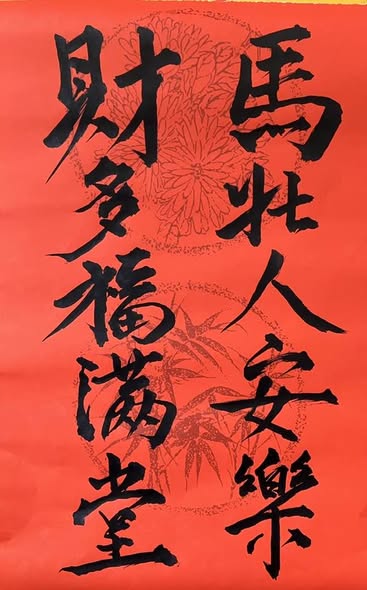 馬壯人安樂
財多福满堂